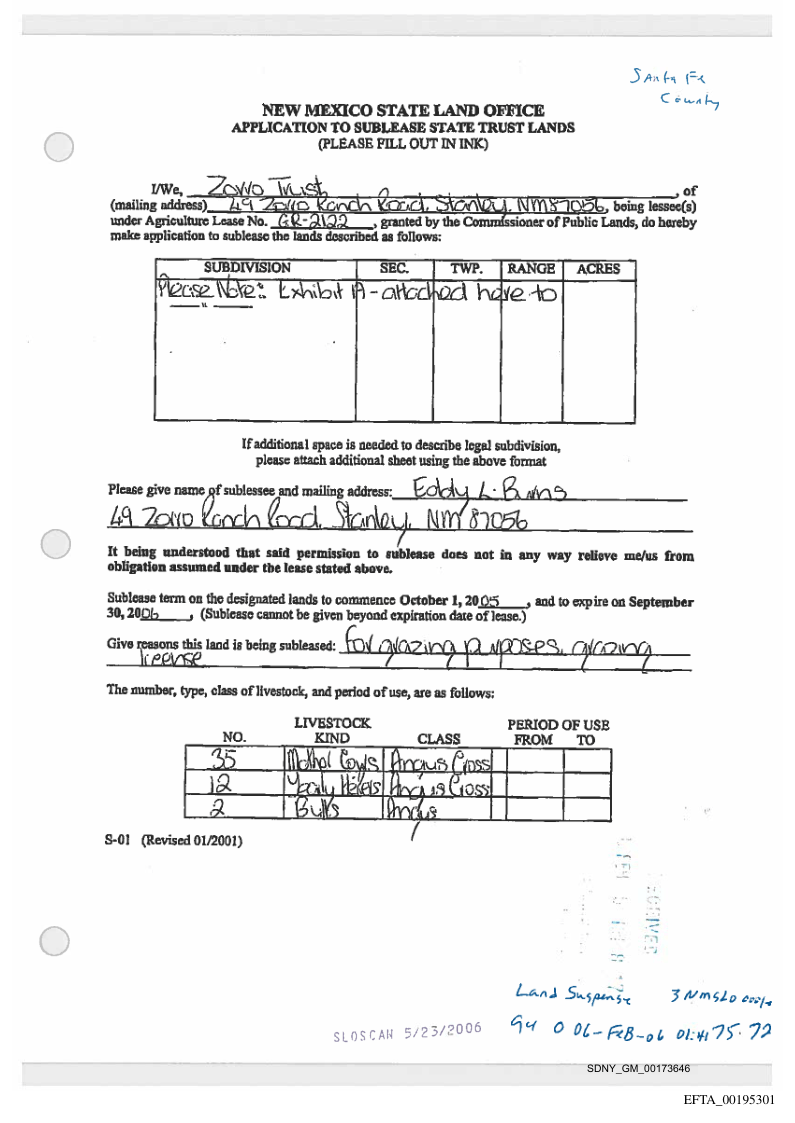 Santa Fe
County
NEW MEXICO STATE LAND OFFICE
APPLICATION TO SUBLEASE STATE TRUST LANDS
(PLEASE FILL OUT IN INK)
I/We, Zorro Trust, of
(mailing address) 49 Zorro Ranch Road, Stanley, NM 87056, being lessee(s)
under Agriculture Lease No. GR-2122, granted by the Commissioner of Public Lands, do hereby
make application to sublease the lands described as follows:
SUBDIVISION SEC. TWP. RANGE ACRES
Please Note: Exhibit A - attached here to
If additional space is needed to describe legal subdivision,
please attach additional sheet using the above format
Please give name of sublessee and mailing address: Eddy L. Burns
49 Zorro Ranch Road, Stanley, NM 87056
It being understood that said permission to sublease does not in any way relieve me/us from
obligation assumed under the lease stated above.
Sublease term on the designated lands to commence October 1, 2005, and to expire on September
30, 2006, (Sublease cannot be given beyond expiration date of lease.)
Give reasons this land is being subleased: for grazing purposes, grazing
license
The number, type, class of livestock, and period of use, are as follows:
LIVESTOCK PERIOD OF USE
NO. KIND CLASS FROM TO
35 Cows Angus Cross
12 Heifers Angus Cross
2 Bulls Angus
S-01 (Revised 01/2001)
RECEIVED
Land Suspense 3 NMSLO
94 0 06-FEB-06 01:41 75.72
SLOSCAN 5/23/2006
SDNY_GM_00173646
EFTA_00195301